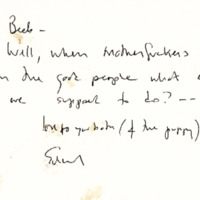 Beeb -
Well, when motherfuckers
the good people what
we suppost to do? --
love to you both (& the puppy)